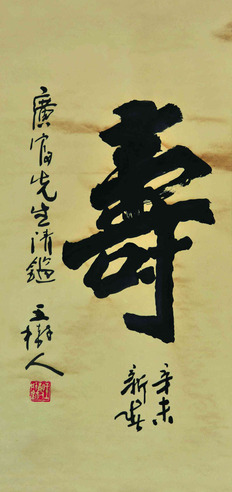 壽
辛未
新春
廣富先生清鑑
王樹人